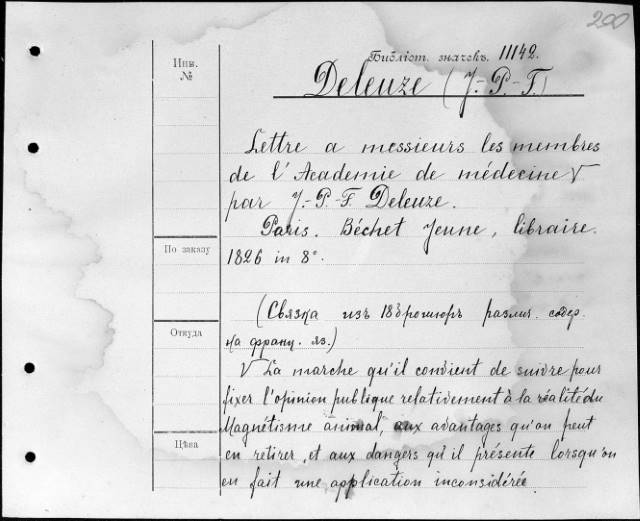 200
Библіот. значекъ. 11142.
Инв.
№
Deleuze (J.-P.-F.)
Lettre a messieurs les membres
de l'Academie de médecine V
par J.-P.-F. Deleuze.
Paris. Béchet Jeune, libraire.
По заказу
1826 in 8°.
(Связка изъ 18 брошюръ различ. содер.
Откуда
на франц. яз.)
V La marche qu'il convient de suivre pour
fixer l'opinion publique relativement à la réalité du
Magnétisme animal, aux avantages qu'on peut
Цѣна
en retirer, et aux dangers qu'il présente lorsqu'on
en fait une application inconsidérée.